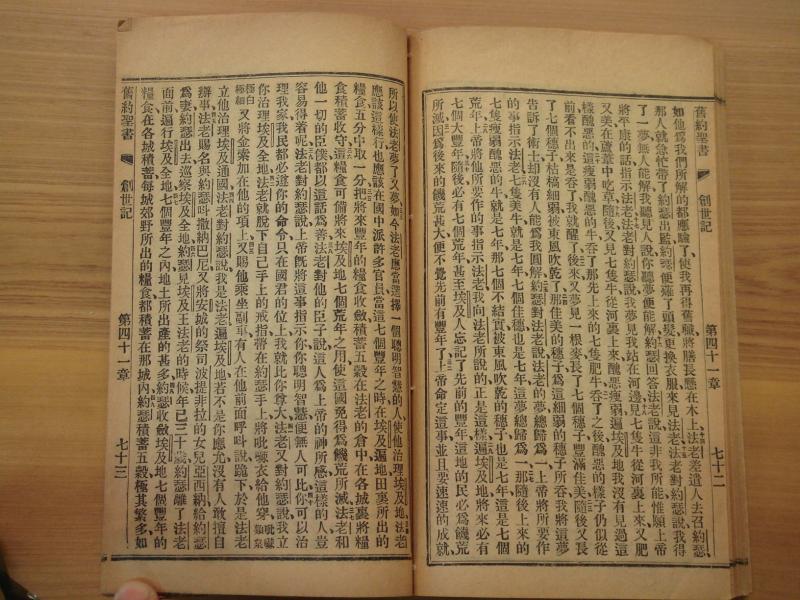 舊約聖書 創世記 第四十一章 七十二
如他爲我們所解的都應驗了使我再得舊職將膳長懸在木上法老差遣人去召約瑟
那人就急忙帶了約瑟出監約瑟便薙了頭髮更換衣服來見法老法老對約瑟說我得
了一夢無人能解我聽見人說你聽夢便能解約瑟回答法老說這非我所能惟願上帝
將平康的話指示法老法老對約瑟說我夢見我站在河邊見七隻牛從河裏上來又肥
又美在蘆葦中吃草隨後又見七隻牛從河裏上來醜惡瘦弱埃及遍地我沒有見過這
樣醜惡的這瘦弱醜惡的牛吞了那先上來的七隻肥牛吞了之後醜惡的樣子仍似從
前看不出來是吞了我就醒了後來又夢見一根麥長了七個穗子豐滿佳美隨後又長
了七個穗子枯槁細弱被東風吹乾了那佳美的穗子爲這細弱的穗子所吞我將這夢
告訴了術士却沒有人能爲我圓解約瑟對法老說法老的夢總歸爲一上帝將所要作
的事指示法老七隻美牛就是七年七個佳穗也是七年這夢總歸爲一那隨後上來的
七隻瘦弱醜惡的牛就是七年那七個不結實被東風吹乾的穗子也是七年這是七個
荒年上帝將他所要作的事指示法老我向法老所說的正是這樣遍埃及地將來必有
七個大豐年隨後必有七個荒年甚至埃及人忘記了先前的豐年這地的民必爲饑荒
所滅因爲後來的饑荒甚大便不覺先前有豐年了上帝命定這事並且要速速的成就
所以他法老夢了又夢如今法老應當選擇一個聰明智慧的人使他治理埃及地法老
應該這樣行也應該在國中派許多官員當這七個豐年之時在埃及遍地田裏所出的
糧食五分中取一分把將來豐年的糧食收斂積蓄五穀在法老的倉中在各城裏將糧
食積蓄收守這糧食可備將來埃及地七個荒年之用使這國免得爲饑荒所滅法老和
他一切的臣僕都以這話爲善法老對他的臣子說這人爲上帝的神所感這樣的人豈
容易得着呢法老對約瑟說上帝旣將這事指示你你聰明智慧便無人可比你可以治
理我家我民都必遵你的命令只在國君的位上我就比你尊大法老又對約瑟說我立
你治理埃及全地法老就脫下自己手上的戒指帶在約瑟手上將㲲紗衣給他穿
又將金索加在他的項上又賜他乘坐副車有人在他前面呼呌說跪下於是法老
立他治理埃及通國法老對約瑟說我是法老遍埃及地若不是你應允沒有人敢擅自
辦事法老賜名與約瑟呌撒納巴尼又將安城的祭司波提非拉的女兒亞西納給約瑟
爲妻約瑟出去巡察埃及全地約瑟見埃及王法老的時候年已三十歲約瑟離了法老
面前遍行埃及全地七個豐年之內地土所出產的甚多約瑟收斂埃及地七個豐年的
糧食在各城積蓄每城郊野所出的糧食都積蓄在那城內約瑟積蓄五穀極其繁多如
舊約聖書 創世記 第四十一章 七十三